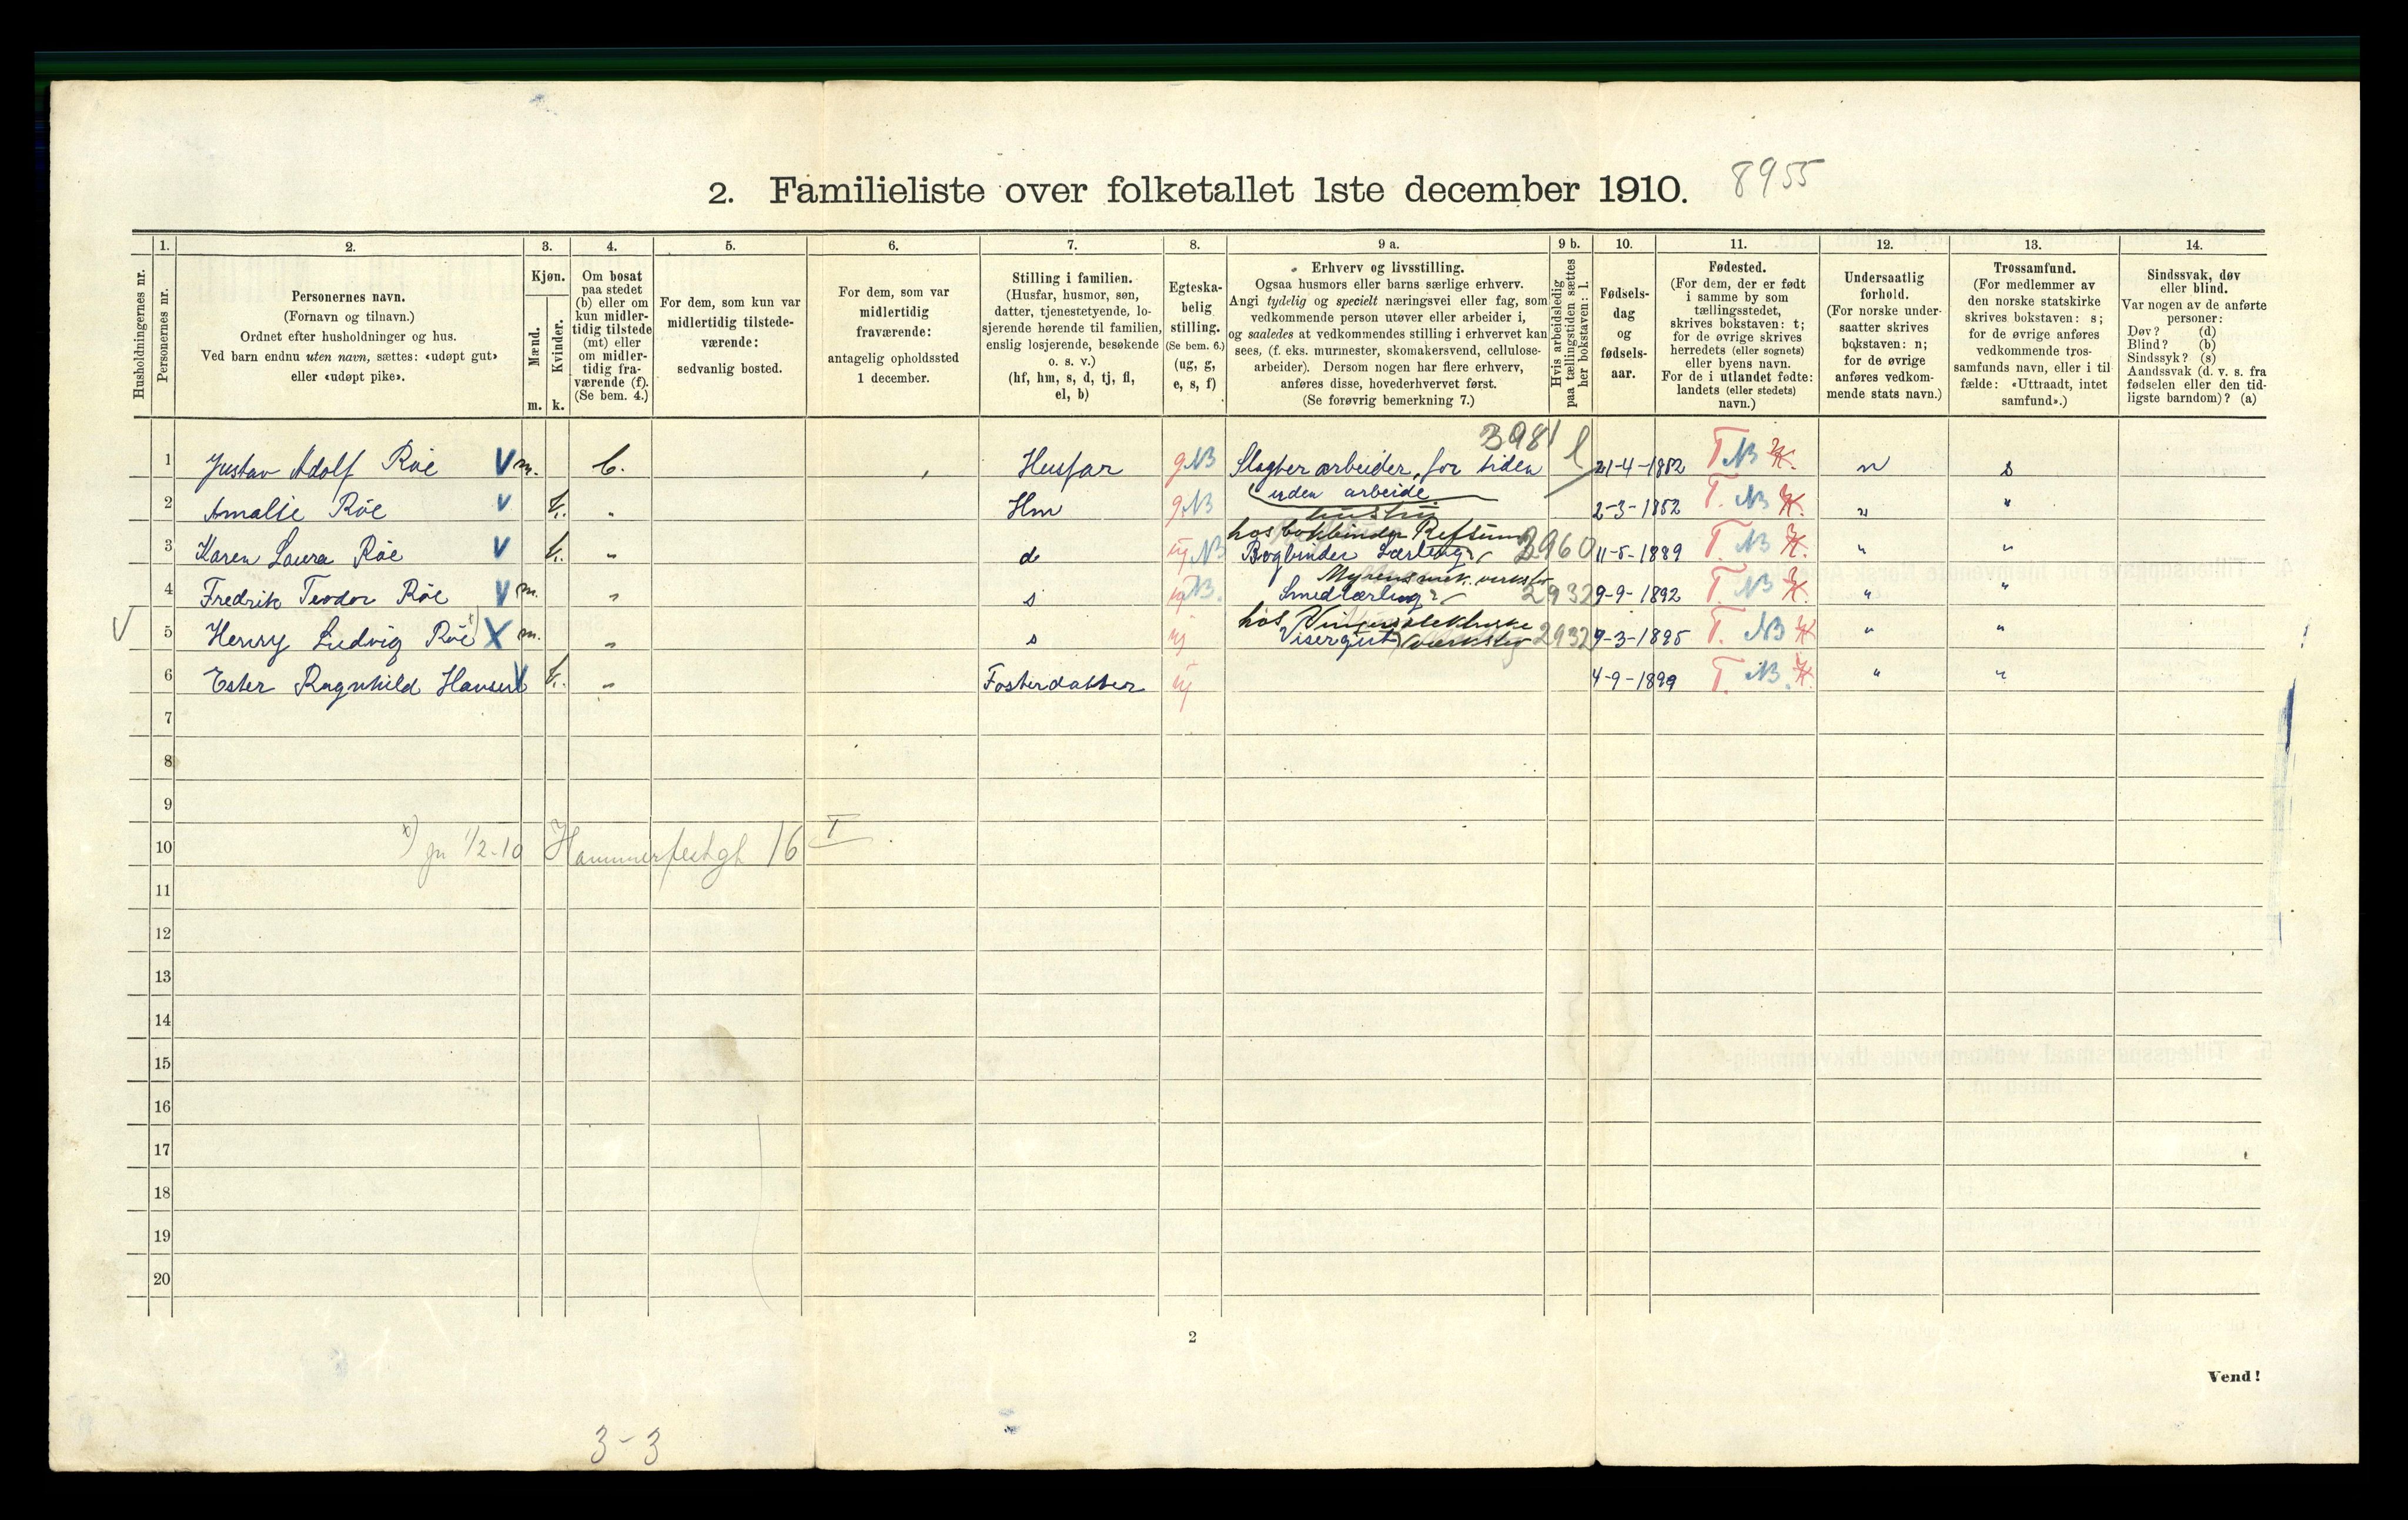 2. Familieliste over folketallet 1ste december 1910. 8955
Husholdningernes nr.
1. Personernes nr.
2. Personernes navn.
(Fornavn og tilnavn.)
Ordnet efter husholdninger og hus.
Ved barn endnu uten navn, sættes: «udøpt gut»
eller «udøpt pike».
3. Kjøn.
Mænd. m.
Kvinder. k.
4. Om bosat
paa stedet
(b) eller om
kun midler-
tidig tilstede
(mt) eller
om midler-
tidig fra-
værende (f).
(Se bem. 4.)
5. For dem, som kun var
midlertidig tilstede-
værende:
sedvanlig bosted.
6. For dem, som var
midlertidig
fraværende:
antagelig opholdssted
1 december.
7. Stilling i familien.
(Husfar, husmor, søn,
datter, tjenestetyende, lo-
sjerende hørende til familien,
enslig losjerende, besøkende
o. s. v.)
(hf, hm, s, d, tj, fl,
el, b)
8. Egteska-
belig
stilling.
(Se bem. 6.)
(ug, g,
e, s, f)
9 a. Erhverv og livsstilling.
Ogsaa husmors eller barns særlige erhverv.
Angi tydelig og specielt næringsvei eller fag, som
vedkommende person utøver eller arbeider i,
og saaledes at vedkommendes stilling i erhvervet kan
sees, (f. eks. murmester, skomakersvend, cellulose-
arbeider). Dersom nogen har flere erhverv,
anføres disse, hovederhvervet først.
(Se forøvrig bemerkning 7.)
9 b. Hvis arbeidsledig
paa tællingstiden sættes
her bokstaven: l.
10. Fødsels-
dag
og
fødsels-
aar.
11. Fødested.
(For dem, der er født
i samme by som
tællingsstedet,
skrives bokstaven: t;
for de øvrige skrives
herredets (eller sognets)
eller byens navn.
For de i utlandet fødte:
landets (eller stedets)
navn.)
12. Undersaatlig
forhold.
(For norske under-
saatter skrives
bokstaven: n;
for de øvrige
anføres vedkom-
mende stats navn.)
13. Trossamfund.
(For medlemmer av
den norske statskirke
skrives bokstaven: s;
for de øvrige anføres
vedkommende tros-
samfunds navn, eller i til-
fælde: «Uttraadt, intet
samfund».)
14. Sindssvak, døv
eller blind.
Var nogen av de anførte
personer:
Døv? (d)
Blind? (b)
Sindssyk? (s)
Aandssvak (d. v. s. fra
fødselen eller den tid-
ligste barndom)? (a)
3981
1 Gustav Adolf Röe V m. b. Husfar g NB Slagter arbeider, for tiden l 21-4-1852 T NB K. n s
uden arbeide
2 Amalie Röe V k. „ Hm g NB hustru 2-3-1852 T. NB K. n „
hos bokbinder Refsum
3 Karen Laura Röe V k. „ d ug NB Bogbinder Lærling 2960 11-5-1889 T. NB K. „ „
Myrens mek. verksted
4 Fredrik Teodor Röe V m. „ s ug NB. Smedlærling 2932 9-9-1892 T. NB K. „ „
hos elektriske
V 5 Henry Ludvig Röe x) X m. „ s ug Visergut verksted 2932 9-3-1895 T. NB K „ „
6 Ester Ragnhild Hansen V k. „ Fosterdatter ug 4-9-1899 T. NB. K. „ „
7
8
9
10 x) pr 1/2-10 Hammerfestgt 16 I
11
12
13
14
15
16
17
18
19
20
2
Vend!
3-3